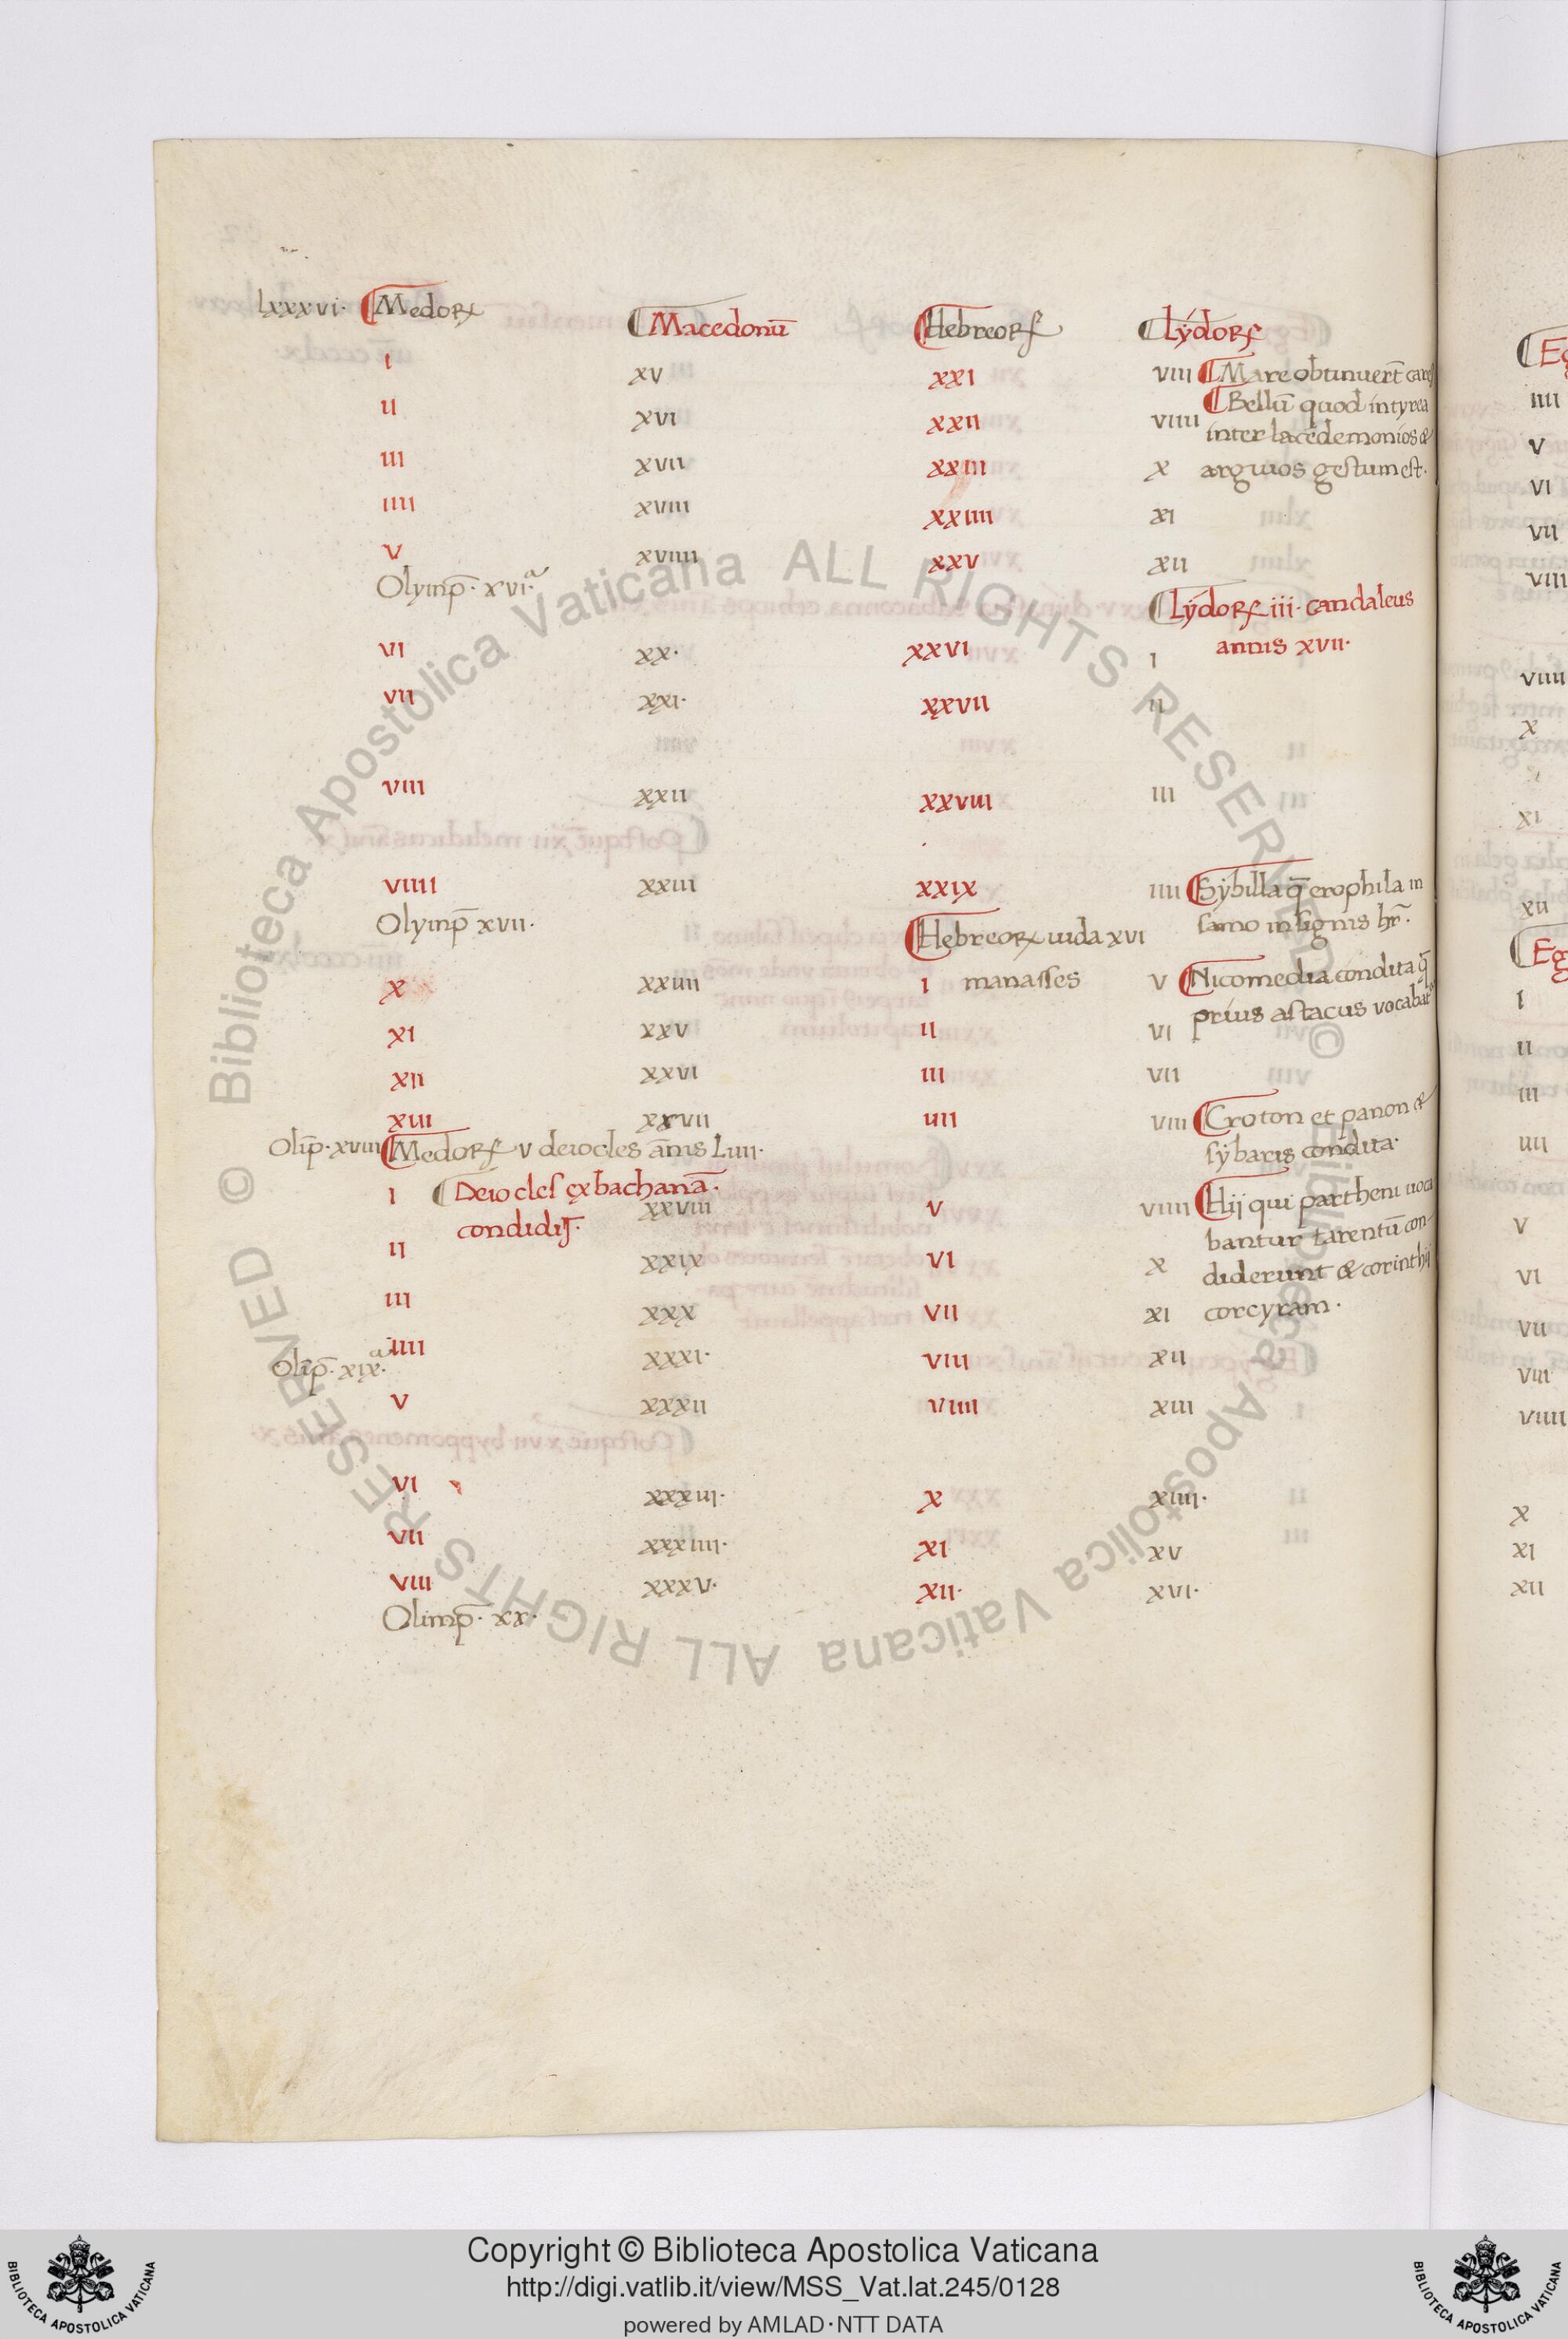 lxxxvi· Medoꝝ Macedonū Hebreoꝝ Lẏdoꝝ
i xv xxi viii Mare obtinuer̄t
ii xvi xxii viiii Bellū quod intyrea
inter lacedemonios &
iii xvii xxiii x arguios gestum est·
iiii xviii xxiiii xi
v xviiii xxv xii
Olymp̄· xviᵃ· Lẏdoꝝ iii· candaleus
annis xvii·
vi xx· xxvi i
vii xxi· xxvii ii
viii xxii xxviii iii
viiii xxiii xxix iiii Sẏbilla q̄ erophila in
Olymp̄ xvii· Hebreoꝝ uida xvi samo insignis hr̄·
x xxiiii i manasses v Nicomedia condita q̄
prius astacus vocabat
xi xxv ii vi
xii xxvi iii vii
xiii xxvii iiii viii Croton et panon &
Olip̄· xviii Medoꝝ v deiocles ānis Liiii· sẏbaris condita·
i Deiocles exbachanā· xxviii v viiii Hij qui partheni uoca
condidit· bantur tarentū con
ii xxix vi x diderunt & corinthij
iii xxx vii xi corcyram·
iiii xxxi· viii xii
Olip̄· xixᵃ·
v xxxii viiii xiii
vi xxxiii· x xiiii·
vii xxxiiii· xi xv
viii xxxv· xii· xvi·
Olimp̄· xx·
Eg
iiii
v
vi
vii
viii
viiii
x
xi
xii
Eg
i
ii
iii
iiii
v
vi
vii
viii
viiii
x
xi
xii
© Biblioteca Apostolica Vaticana ALL RIGHTS RESERVED
© Biblioteca Apostolica Vaticana ALL RIGHTS RESERVED
Copyright © Biblioteca Apostolica Vaticana
http://digi.vatlib.it/view/MSS_Vat.lat.245/0128
powered by AMLAD·NTT DATA
BIBLIOTECA APOSTOLICA VATICANA
BIBLIOTECA APOSTOLICA VATICANA